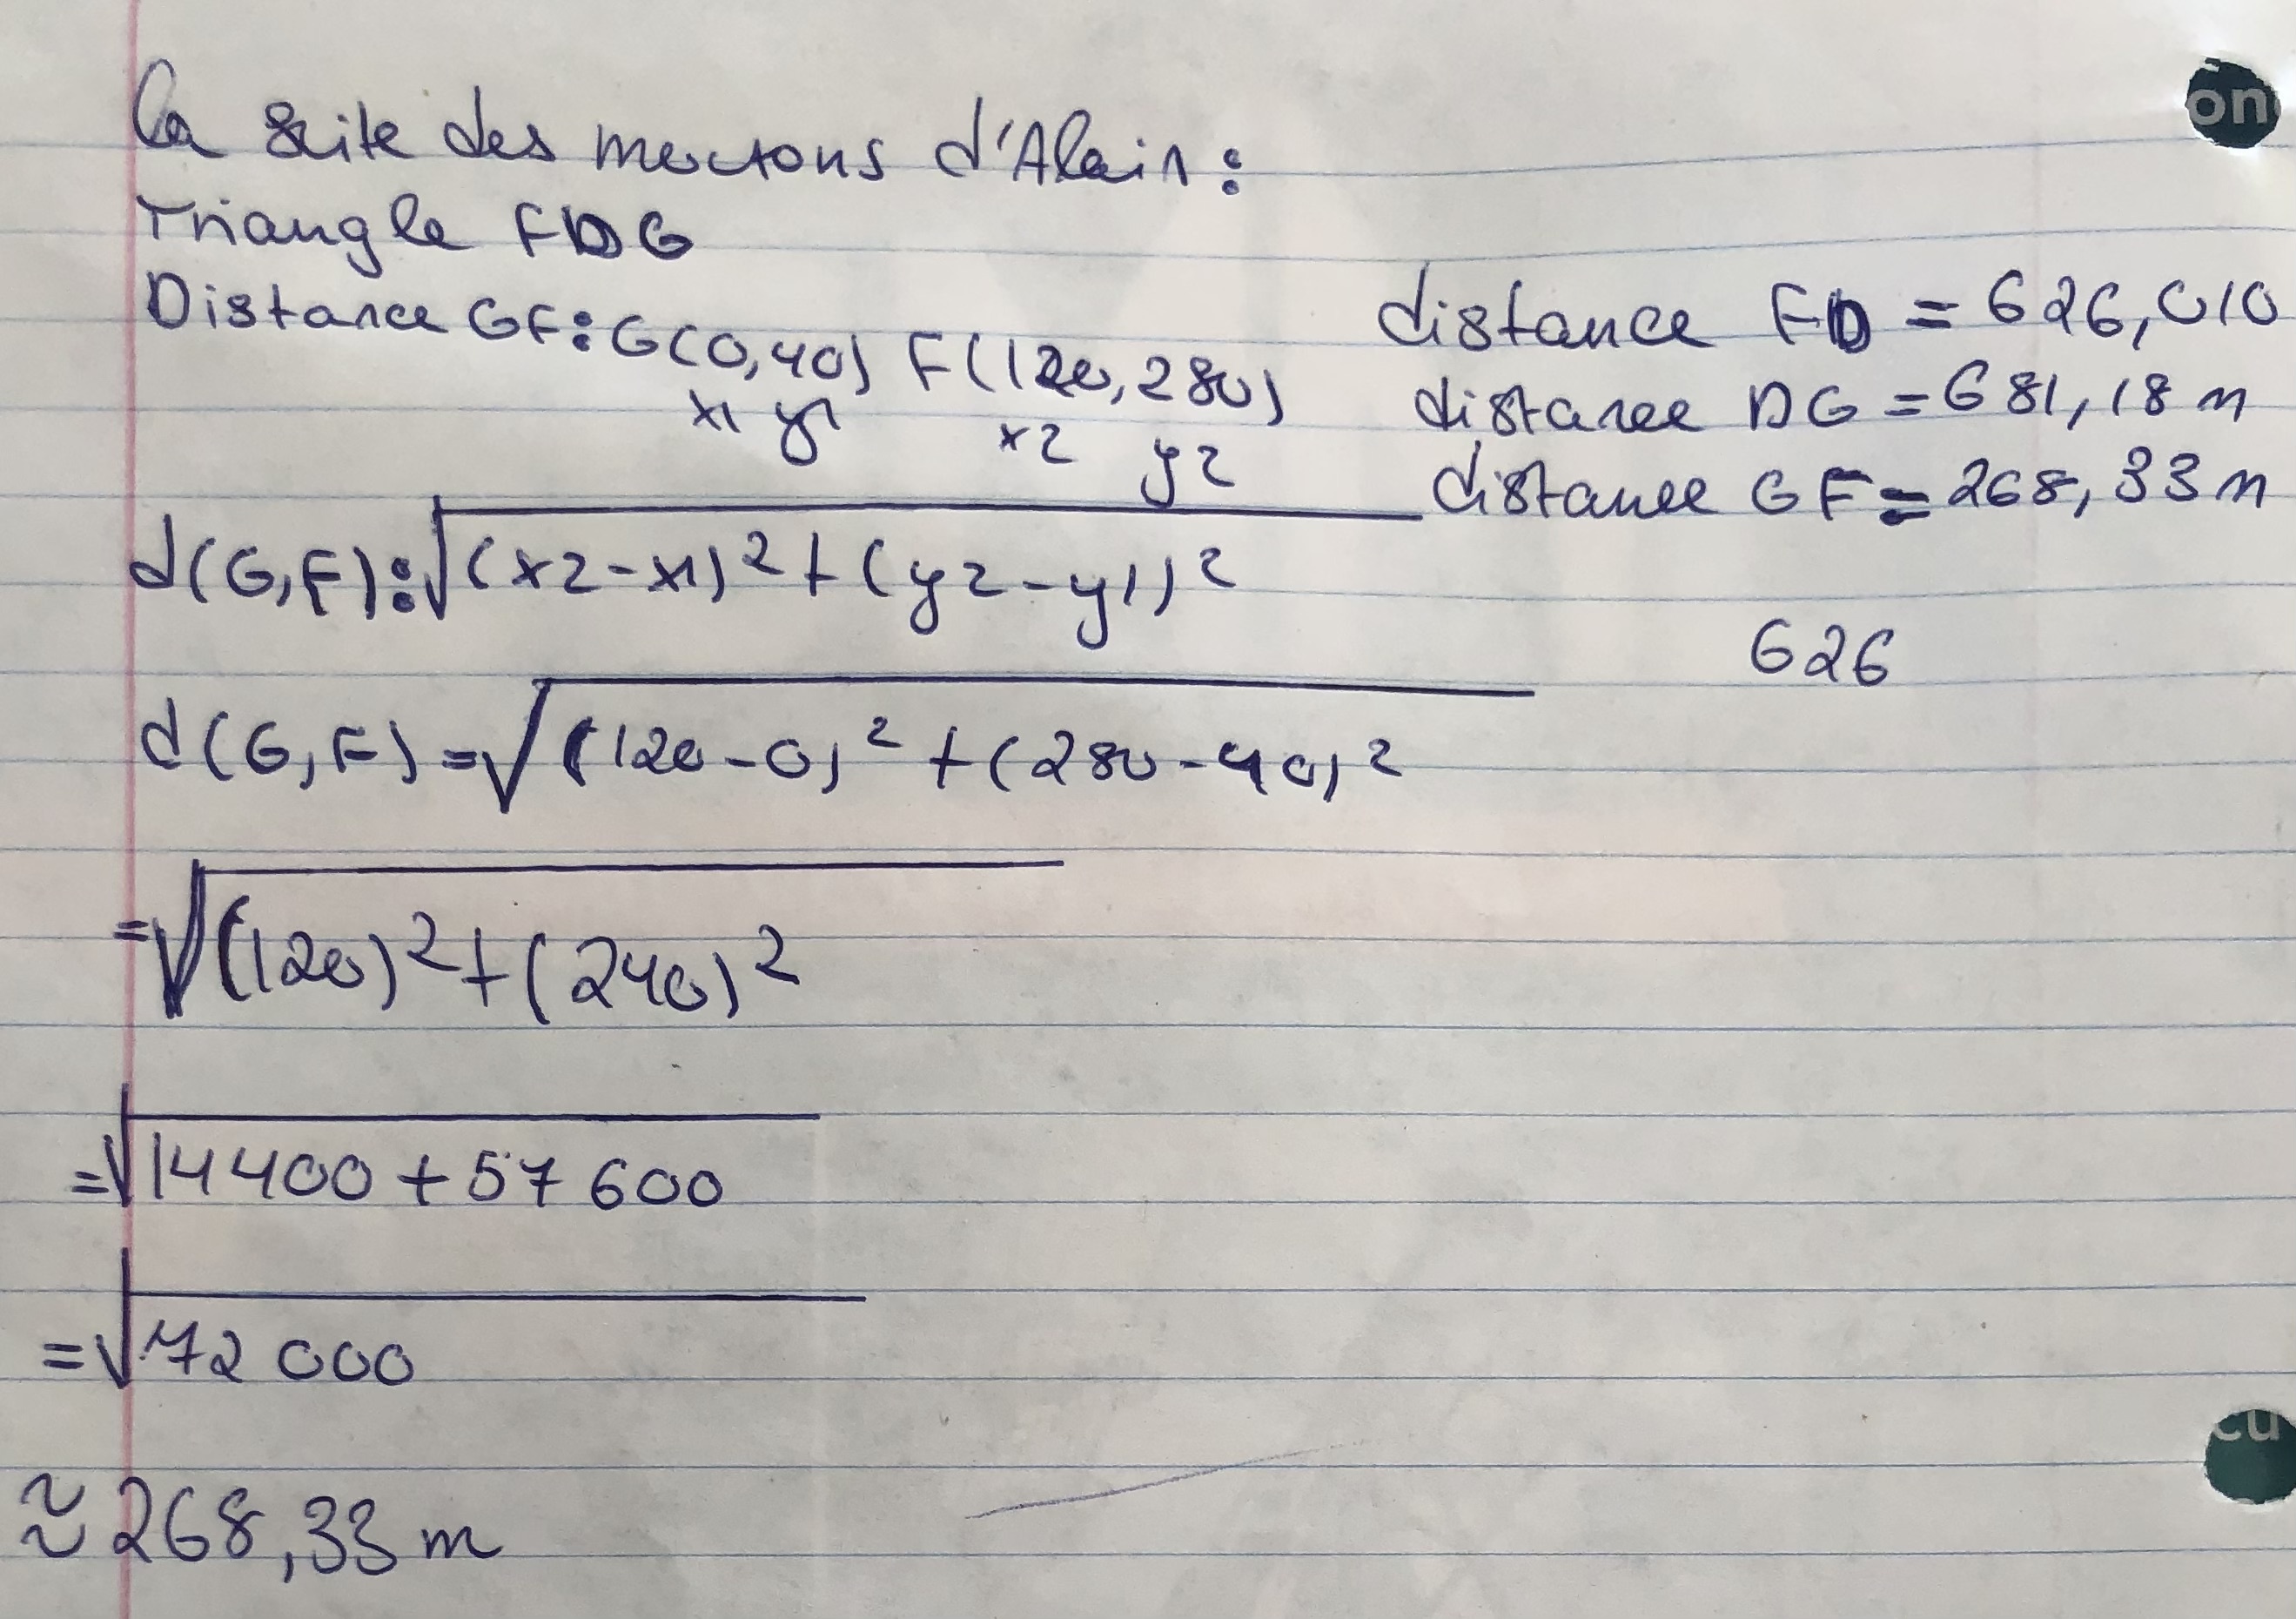 La suite des moutons d'Alain :
Triangle FDG
Distance GF : G(0,40) F(120,280)
x1 y1 x2 y2
d(G,F) : √(x2-x1)² + (y2-y1)²
d(G,F) = √(120-0)² + (280-40)²
= √(120)² + (240)²
= √14400 + 57 600
= √72 000
≈ 268,33 m
distance FD = 626,010
distance DG = 681,18 m
distance GF = 268,33 m
626
on
cu